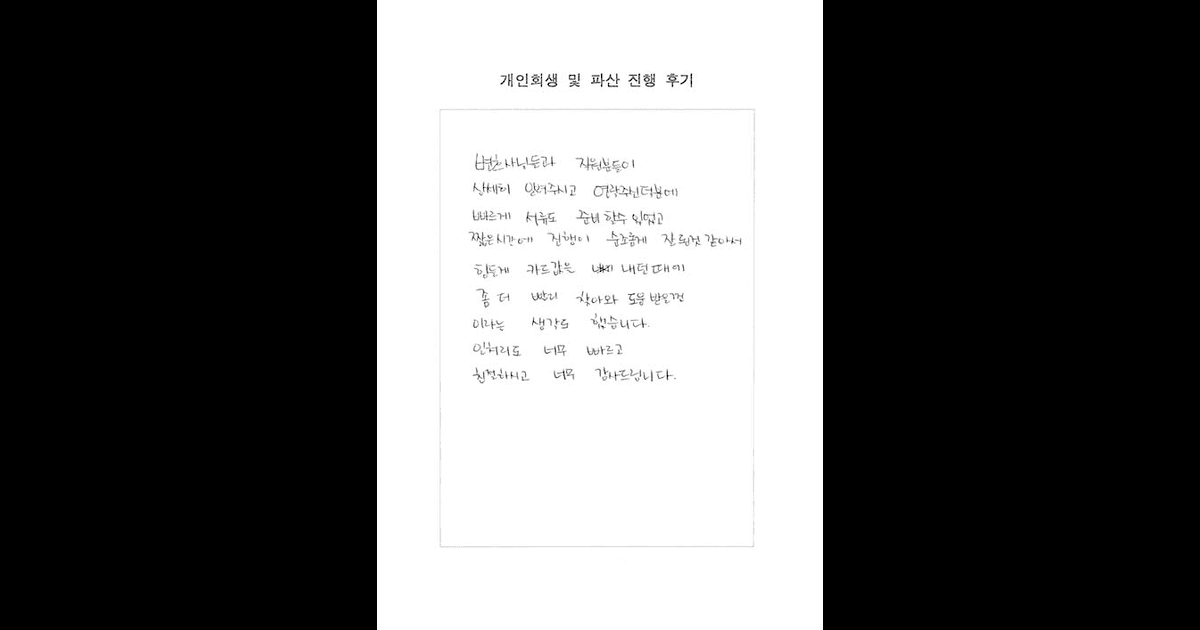 개인회생 및 파산 진행 후기
변호사님들과 직원분들이
상세히 알려주시고 연락주신덕분에
빠르게 서류도 준비 할수 있었고
짧은시간에 진행이 순조롭게 잘 된것 같아서
힘들게 카드값은 내던때에
좀 더 빨리 찾아와 도움 받을껄
이라는 생각도 했습니다.
일처리도 너무 빠르고
친절하시고 너무 감사드립니다.